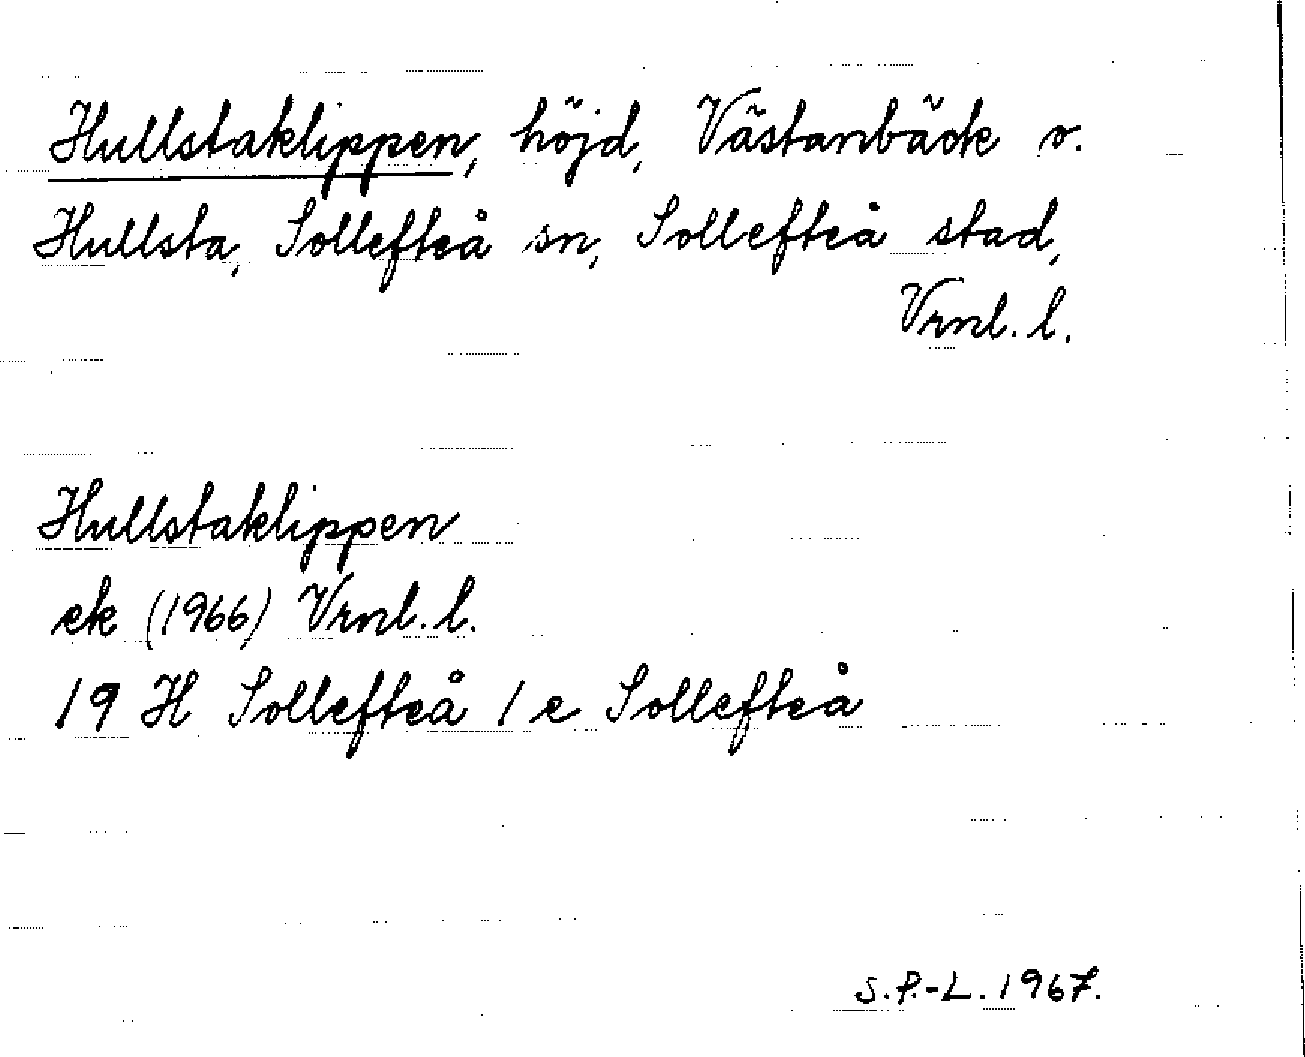 Hullstaklippen, höjd, Västanbäck o.
Hullsta, Sollefteå sn, Sollefteå stad,
Vrnl. l.
Hullstaklippen
ek (1966) Vrnl. l.
19 H Sollefteå 1 e Sollefteå
S.P.-L. 1967.